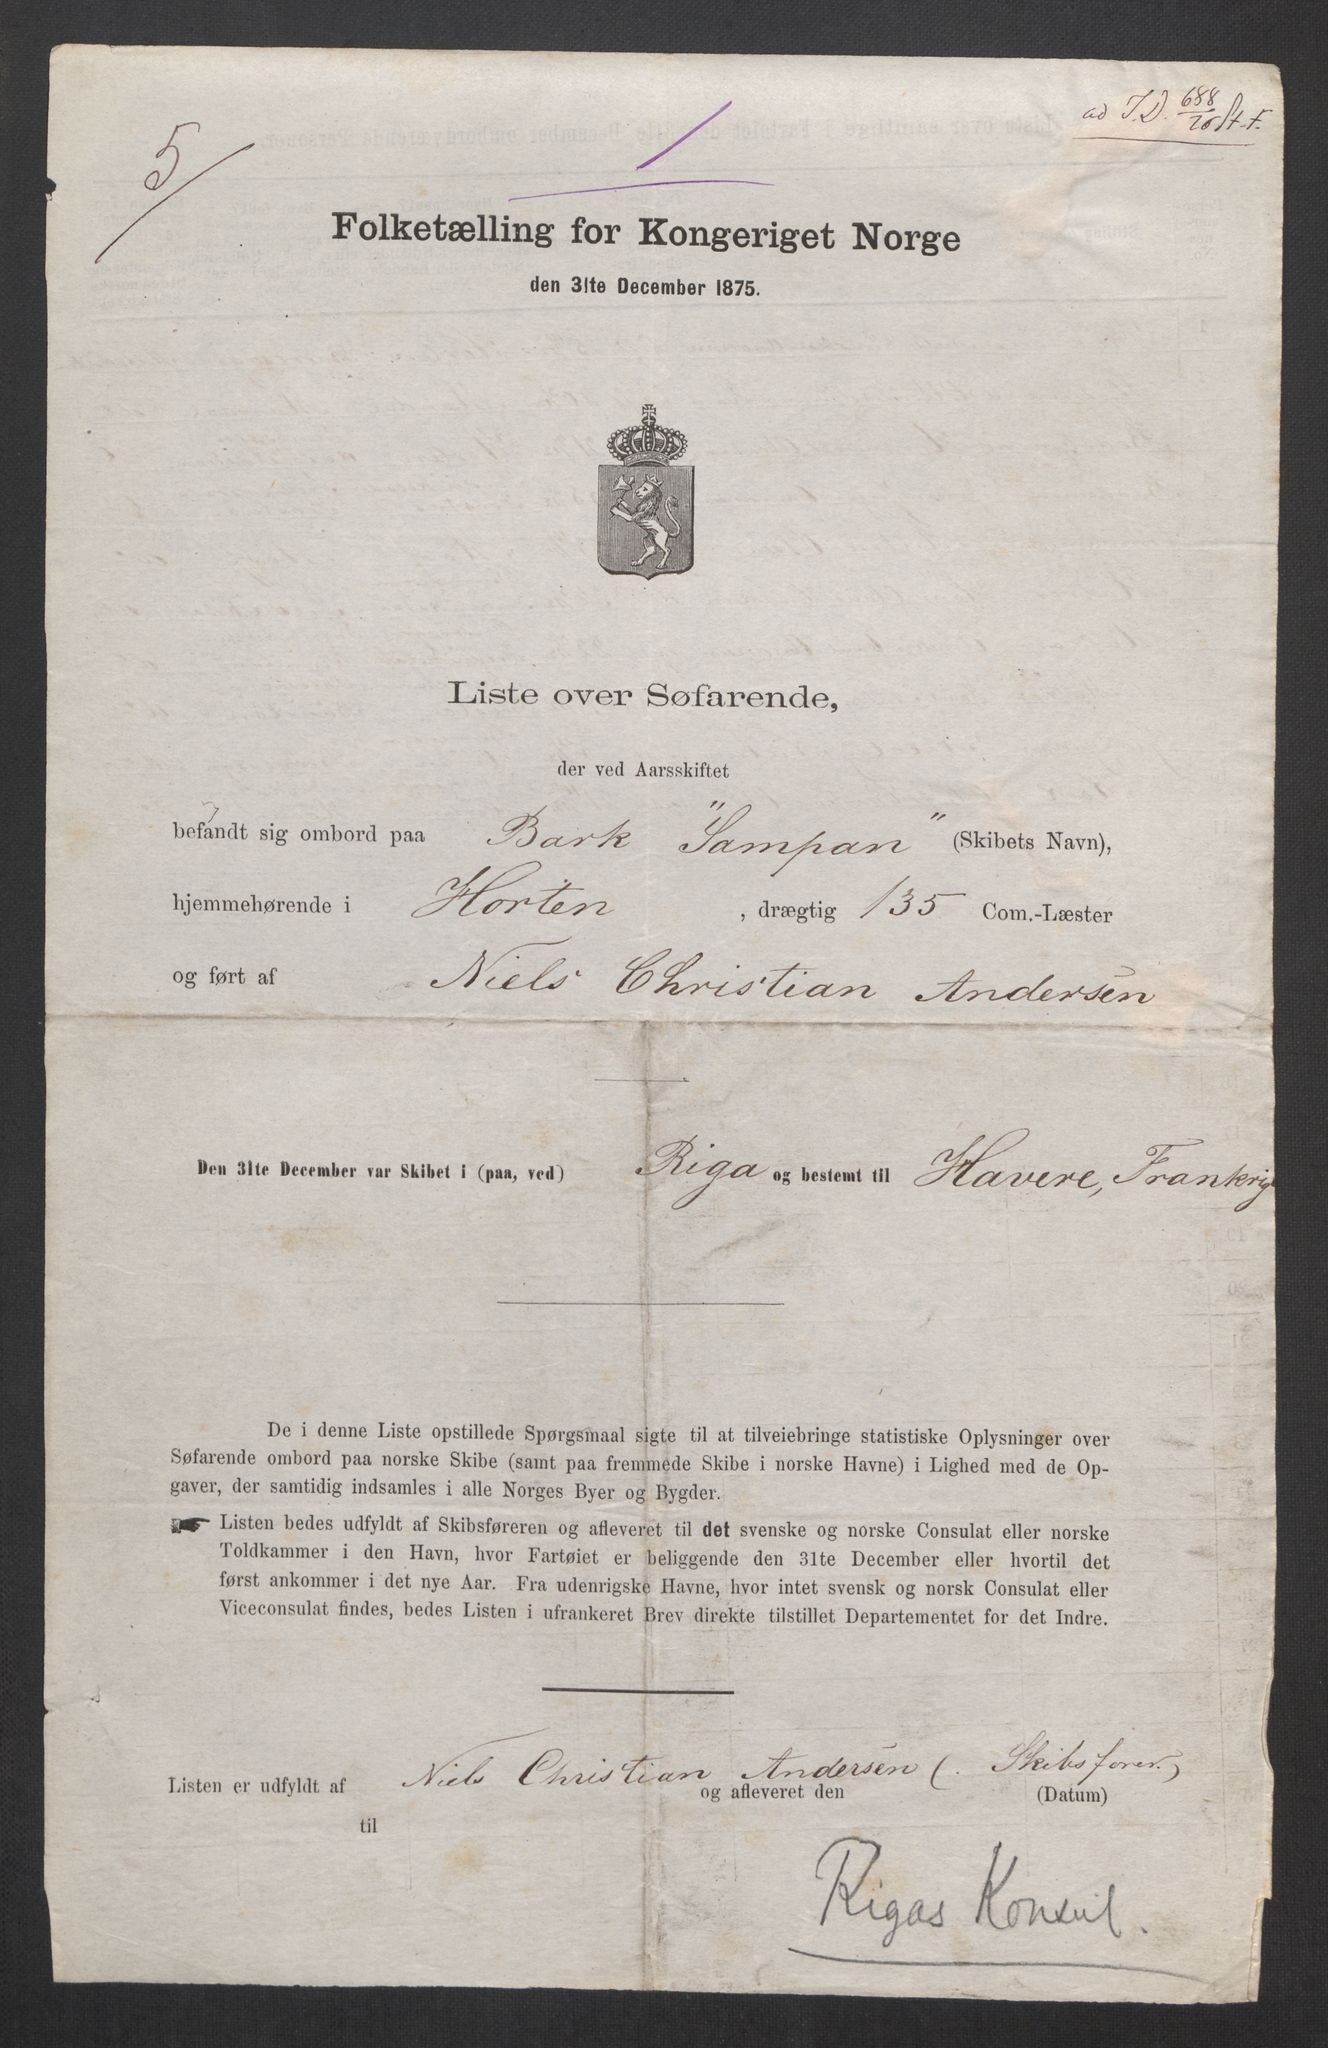 ad I.D. 688/76 St. F.
5
Folketælling for Kongeriget Norge
den 31te December 1875.
Liste over Søfarende,
der ved Aarsskiftet
befandt sig ombord paa Bark "Sampan" (Skibets Navn),
hjemmehørende i Horten, drægtig 135 Com.-Læster
og ført af Niels Christian Andersen
Den 31te December var Skibet i (paa, ved) Riga og bestemt til Havere, Frankrig
De i denne Liste opstillede Spørgsmaal sigte til at tilveiebringe statistiske Oplysninger over
Søfarende ombord paa norske Skibe (samt paa fremmede Skibe i norske Havne) i Lighed med de Op-
gaver, der samtidig indsamles i alle Norges Byer og Bygder.
Listen bedes udfyldt af Skibsføreren og afleveret til det svenske og norske Consulat eller norske
Toldkammer i den Havn, hvor Fartøiet er beliggende den 31te December eller hvortil det
først ankommer i det nye Aar. Fra udenrigske Havne, hvor intet svensk og norsk Consulat eller
Viceconsulat findes, bedes Listen i ufrankeret Brev direkte tilstillet Departementet for det Indre.
Listen er udfyldt af Niels Christian Andersen (. Skibsfører.)
og afleveret den (Datum)
til
Rigas Konsul.